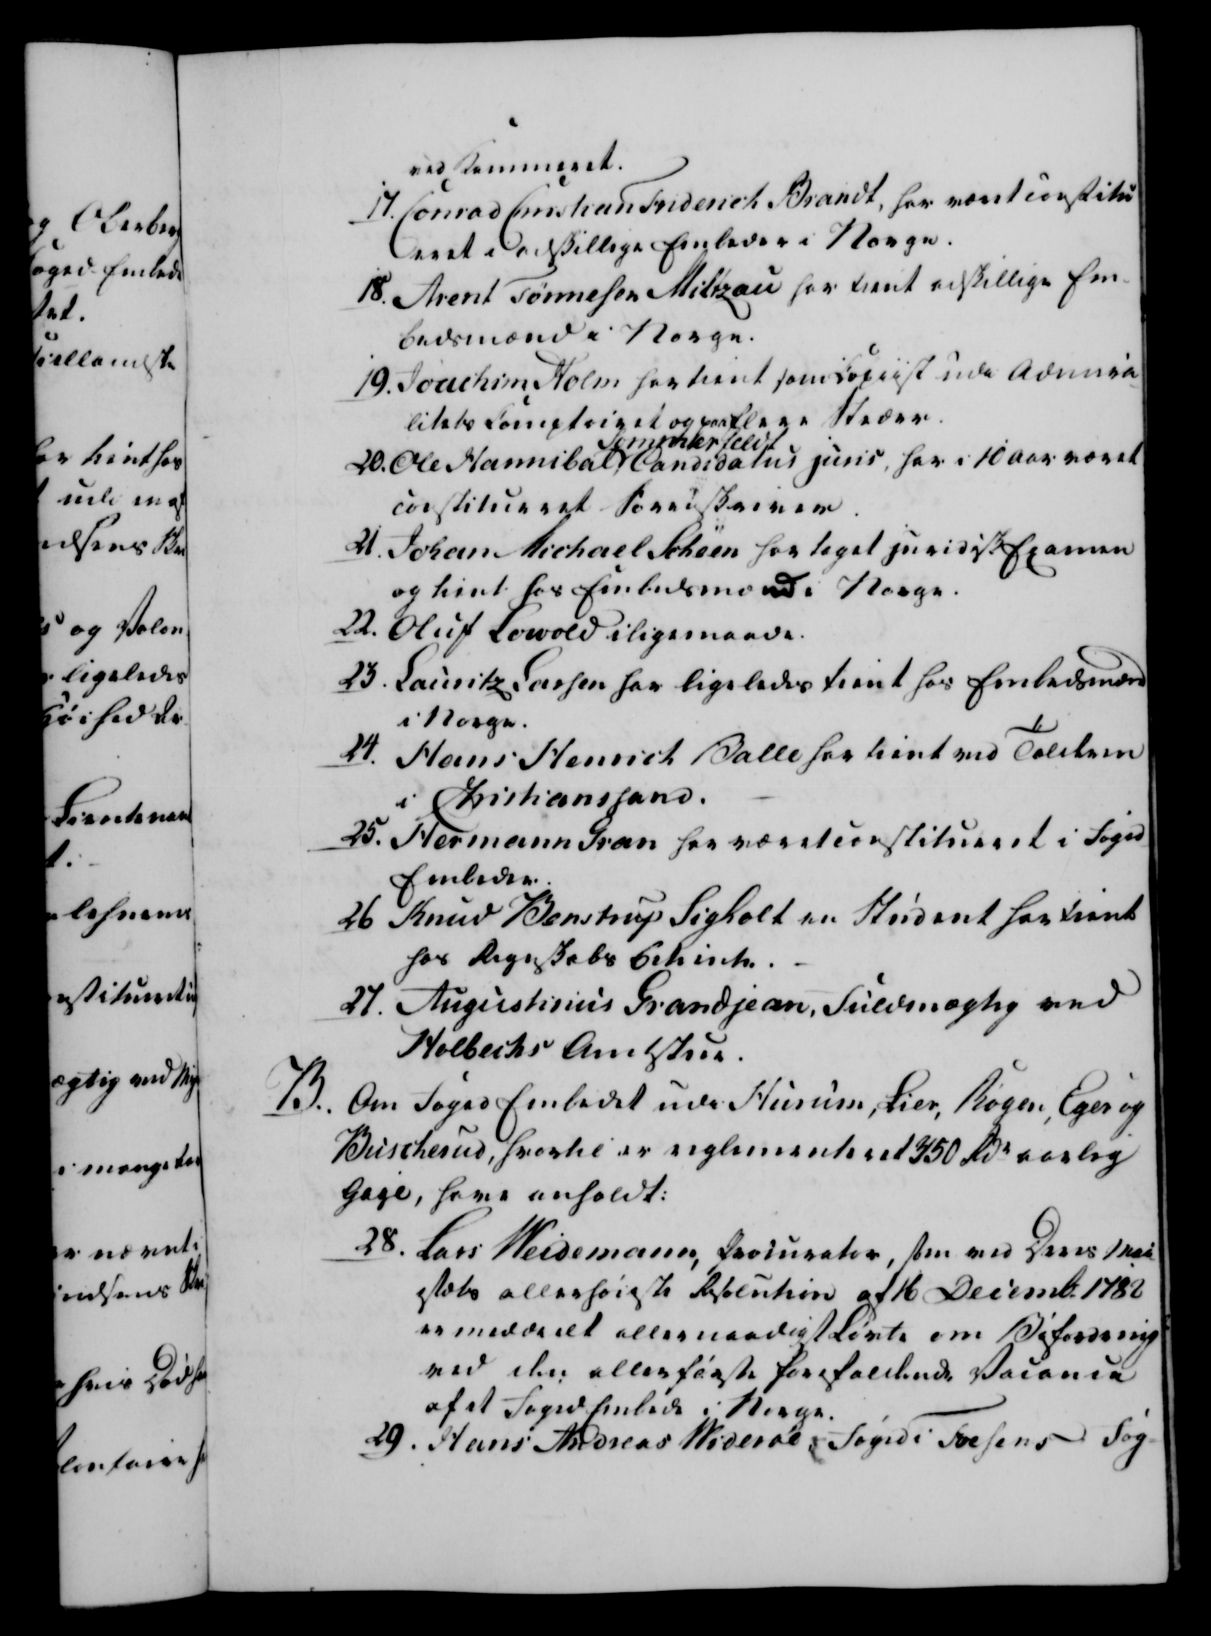 ved Kammeret.
17. Conrad Christian Friderich Brandt, har været constitu
eret i adskillige Embeder i Norge.
18. Arent Tønnesen Miltzau har tient adskillige Em-
bedsmænd i Norge.
19. Joachim Holm har tient som Copiist udi Admira
litets Comptoiret og paa flere Stæder.
Sommerfeldt
20. Ole Hannibal Candidatus juris, har i 10 aar været
constitueret Sorenskriver.
21. Johan Michael Schøen har taget juridisk Examen
og tient hos Embedsmænd i Norge.
22. Oluf Lowold iligemaade.
23. Lauritz Larsen har ligeledes tient hos Embedsmænd
i Norge.
24. Hans Henrich Balle har tient ved Tolderne
i Christianssand.
25. Hermann Gran har været constitueret i Foged
Embeder.
26 Knud Benstrup Sigholt en Student har tient
hos Regnskabs Betiente.
27. Augustinus Grandjean, Fuldmægtig ved
Holbechs Amtstue.
B. Om Foged Embedet udi Hurum, Lier, Røgen, Eger og
Buscherud, hvortil er reglementeret 350 Rdr aarlig
Gage, have anholdt:
28. Lars Weidemann, Procurator, som ved Deres Mai
estæts allerhøieste Resolution af 16 Decemb. 1782
er meddeelt allernaadigst Løfte om Befordring
ved den allerførste forefaldende Vacance
af et Foged Embede i Norge.
29. Hans Andreas Widerøe, Foged i Fosens Fog-